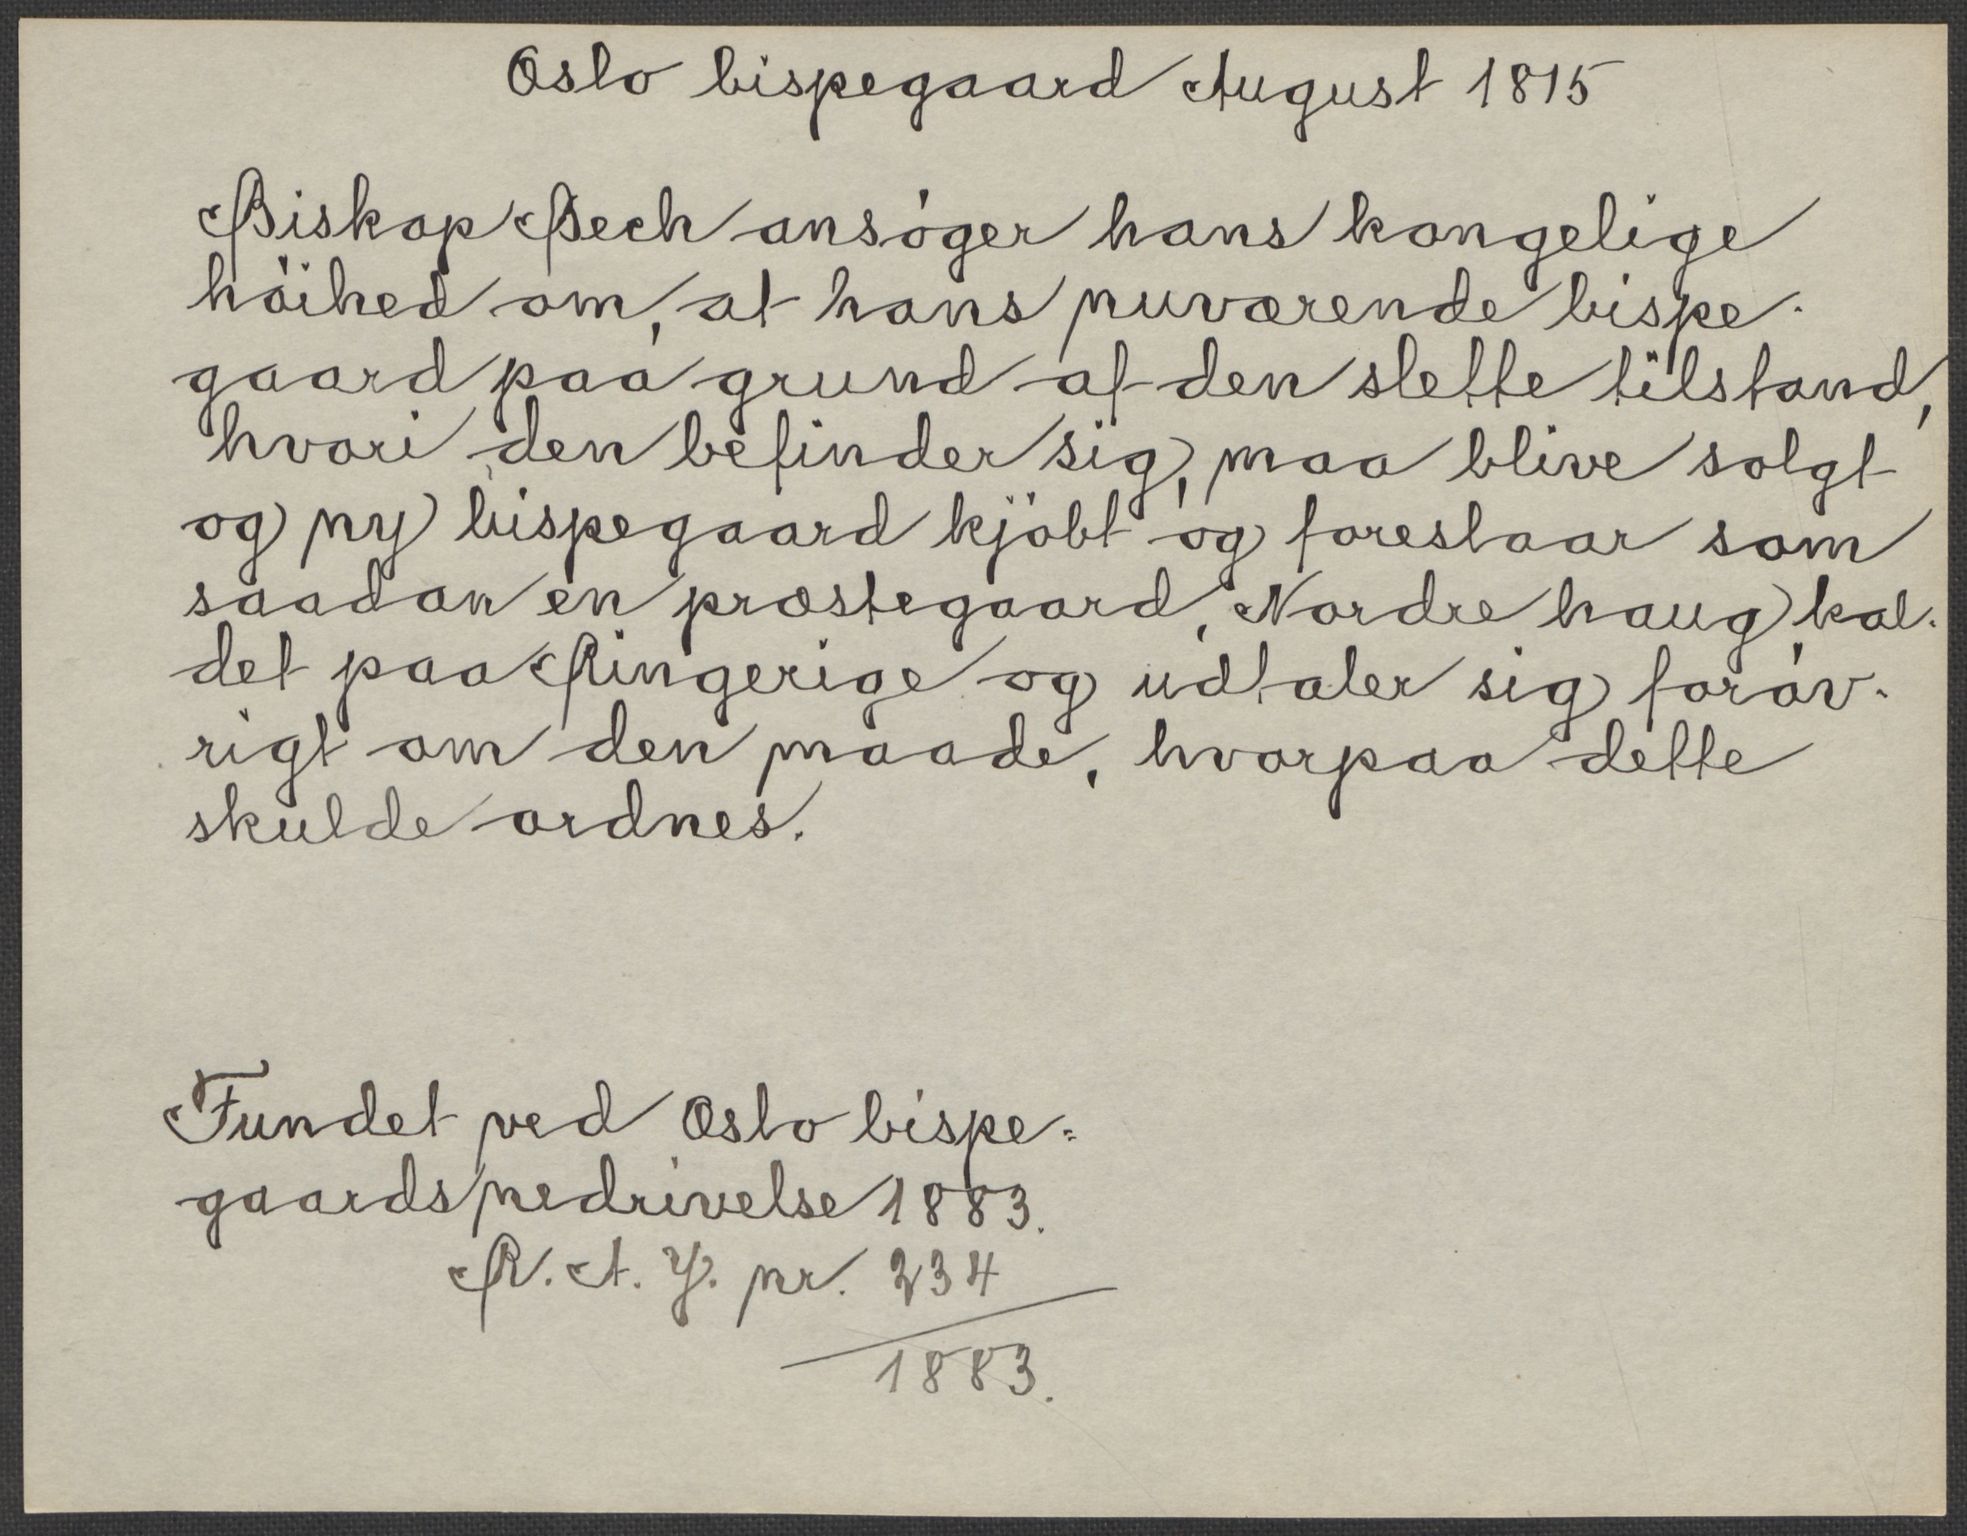 Oslo bispegaard August 1815
Biskop Bech ansöger hans kongelige
höihed om, at hans nuværende bispe-
gaard paa grund af den slette tilstand,
hvori den befinder sig, maa blive solgt
og ny bispegaard kjöbt og foreslaar som
saadan en præstegaard, Nordrehaug kal-
det paa Ringerige og udtaler sig foröv-
rigt om den maade, hvorpaa dette
skulde ordnes.
Fundet ved Oslo bispe=
gaards nedrivelse 1883.
R. A. J. nr. 234
1883.